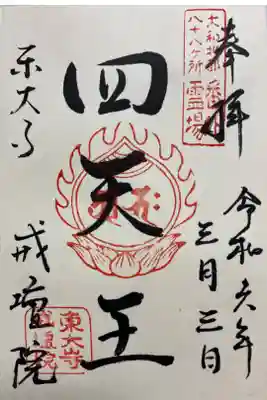 奉拝
令和六年
三月三日
四天王
東大寺
戒壇院
八十八ヶ所
霊場
東大寺
戒壇院